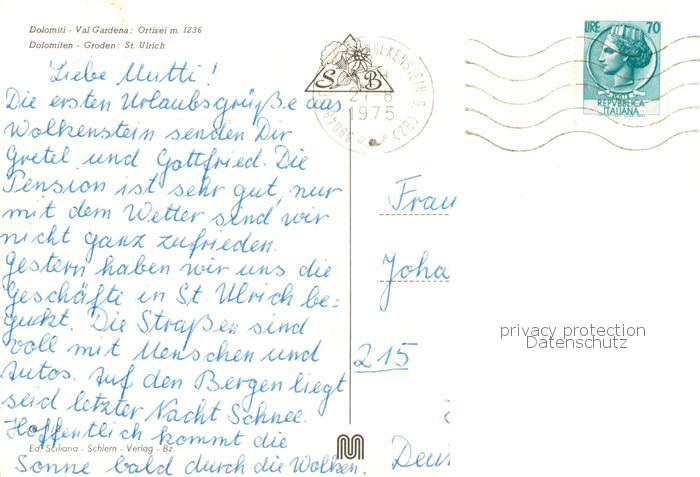 Dolomiti - Val Gardena: Ortisei m. 1236
Dolomiten - Gröden: St. Ulrich
Liebe Mutti!
Die ersten Urlaubsgrüße aus
Wolkenstein senden Dir
Gretel und Gottfried. Die
Pension ist sehr gut, nur
mit dem Wetter sind wir
nicht ganz zufrieden.
Gestern haben wir uns die
Geschäfte in St. Ulrich be=
guckt. Die Straßen sind
voll mit Menschen und
Autos. Auf den Bergen liegt
seid letzter Nacht Schnee.
Hoffentlich kommt die
Sonne bald durch die Wolken.
Ed. Sciliana - Schlern - Verlag - Bz.
WOLKENSTEIN G. (BZ)
S B
1975
LIRE 70
REPVBBLICA
ITALIANA
Frau
Joha
215
privacy protection
Datenschutz